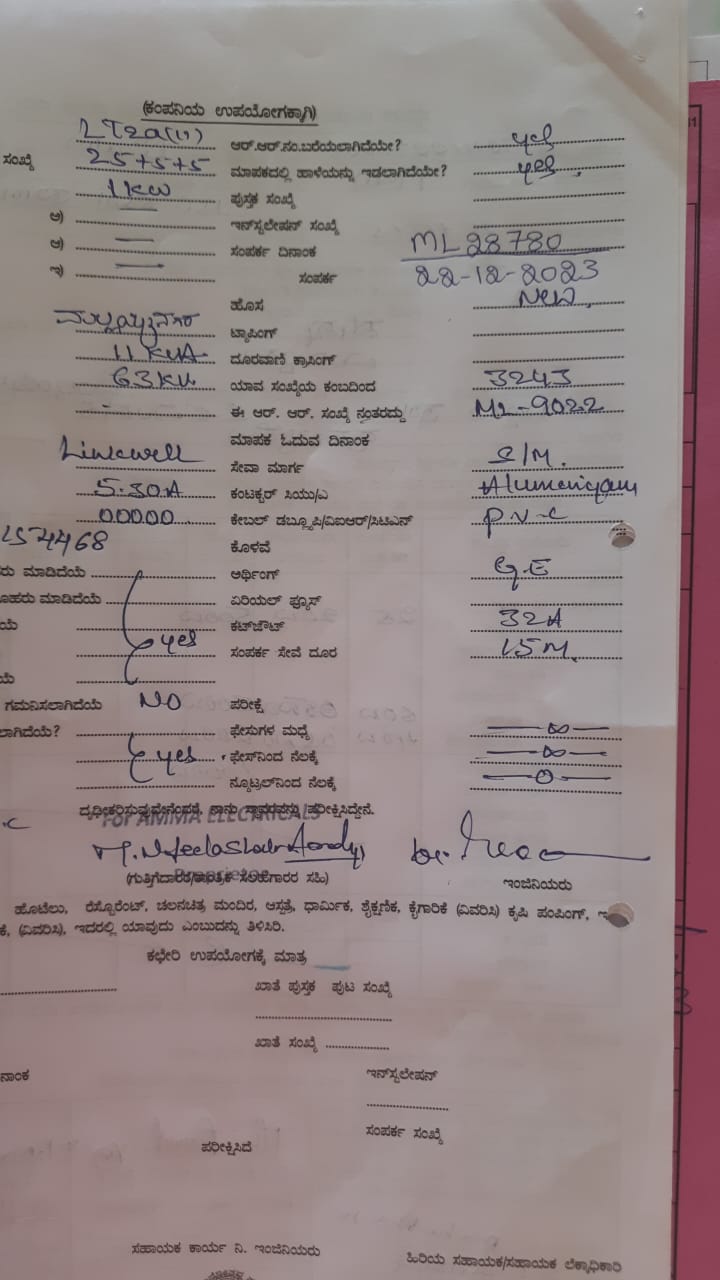 (ಕಂಪನಿಯ ಉಪಯೋಗಕ್ಕಾಗಿ)
LT2a(ii) ಆರ್.ಆರ್.ನಂ.ಬರೆಯಲಾಗಿದೆಯೇ? yes
ಸಂಖ್ಯೆ 25+5+5 ಮಾಪಕದಲ್ಲಿ ಹಾಳೆಯನ್ನು ಇಡಲಾಗಿದೆಯೇ? yes,
1 KW ಪುಸ್ತಕ ಸಂಖ್ಯೆ
ಅ) — ಇನ್‌ಸ್ಟಲೇಷನ್ ಸಂಖ್ಯೆ
ಆ) — ಸಂಪರ್ಕ ದಿನಾಂಕ ML28780
ಇ) — ಸಂಪರ್ಕ 22-12-2023
ಹೊಸ New,
ಟ್ಯಾಪಿಂಗ್
11 KVA ದೂರವಾಣಿ ಕ್ರಾಸಿಂಗ್
63KV ಯಾವ ಸಂಖ್ಯೆಯ ಕಂಬದಿಂದ 3243
- ಈ ಆರ್. ಆರ್. ಸಂಖ್ಯೆ ನಂತರದ್ದು ML-9022
ಮಾಪಕ ಓದುವ ದಿನಾಂಕ
Linkwell ಸೇವಾ ಮಾರ್ಗ S/M.
5-30A ಕಂಟಕ್ಟರ್ ಸಿಯು/ಎ Alumeniyam
00000 ಕೇಬಲ್ ಡಬ್ಲ್ಯೂಪಿ/ವಿಐಆರ್/ಸಿಟಿಎಸ್ P.V.C
154468 ಕೊಳವೆ
ರು ಮಾಡಿದೆಯೆ ಅರ್ಥಿಂಗ್ G.E
ೂಹರು ಮಾಡಿದೆಯೆ ಏರಿಯಲ್ ಫ್ಯೂಸ್
ಯೆ ಕಟ್‌ಔಟ್ 32A
yes ಸಂಪರ್ಕ ಸೇವೆ ದೂರ 15M.
ಯೆ
ಗಮನಿಸಲಾಗಿದೆಯೆ NO ಪರೀಕ್ಷೆ
ಲಾಗಿದೆಯೆ? ಫೇಸುಗಳ ಮಧ್ಯೆ — ∞ —
yes ಫೇಸ್‌ನಿಂದ ನೆಲಕ್ಕೆ — ∞ —
ನ್ಯೂಟ್ರಲ್‌ನಿಂದ ನೆಲಕ್ಕೆ — 0 —
ದೃಢೀಕರಿಸುವುದೇನೆಂದರೆ, ನಾನು ಸ್ಥಾವರವನ್ನು ಪರೀಕ್ಷಿಸಿದ್ದೇನೆ.
For AMMA ELECTRICALS
(ಗುತ್ತಿಗೆದಾರರ/ಸಲಹೆಗಾರರ ಸಹಿ) ಇಂಜಿನಿಯರು
Proprietor
ಹೊಟೆಲು, ರೆಸ್ಟೊರೆಂಟ್, ಚಲನಚಿತ್ರ ಮಂದಿರ, ಆಸ್ಪತ್ರೆ, ಧಾರ್ಮಿಕ, ಶೈಕ್ಷಣಿಕ, ಕೈಗಾರಿಕೆ (ವಿವರಿಸಿ) ಕೃಷಿ ಪಂಪಿಂಗ್,
ಕೆ, (ವಿವರಿಸಿ), ಇದರಲ್ಲಿ ಯಾವುದು ಎಂಬುದನ್ನು ತಿಳಿಸಿರಿ.
ಕಛೇರಿ ಉಪಯೋಗಕ್ಕೆ ಮಾತ್ರ
ಖಾತೆ ಪುಸ್ತಕ ಪುಟ ಸಂಖ್ಯೆ
ಖಾತೆ ಸಂಖ್ಯೆ
ನಾಂಕ ಇನ್‌ಸ್ಟಲೇಷನ್
ಸಂಪರ್ಕ ಸಂಖ್ಯೆ
ಪರೀಕ್ಷಿಸಿದೆ
ಸಹಾಯಕ ಕಾರ್ಯ ನಿ. ಇಂಜಿನಿಯರು ಹಿರಿಯ ಸಹಾಯಕ/ಸಹಾಯಕ ಲೆಕ್ಕಾಧಿಕಾರಿ